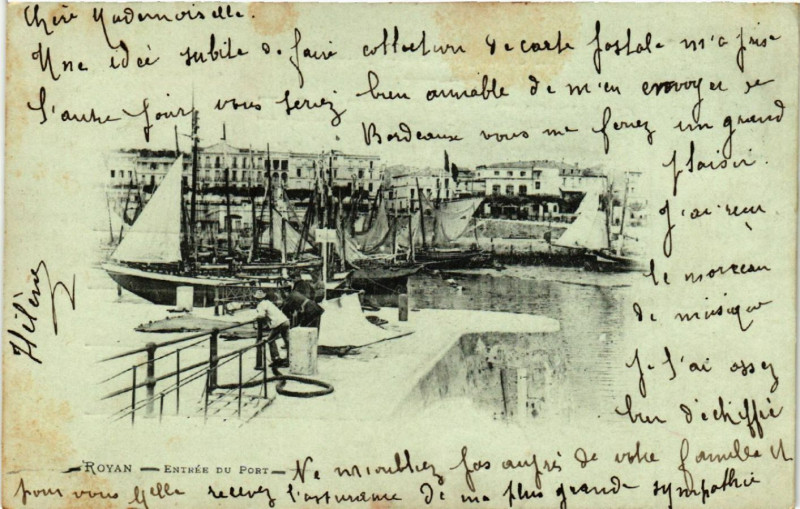 Chère Mademoiselle.
Une idée subite de faire collection de carte postale m'a prise
l'autre jour vous seriez bien aimable de m'en envoyer de
Bordeaux vous me ferez un grand
plaisir.
J'ai reçu
le morceau
de musique
je l'ai assez
bien déchiffré
Hélène
ROYAN — ENTRÉE DU PORT —
Ne m'oubliez pas auprès de votre famille et
pour vous Melle recevez l'assurance de ma plus grande sympathie